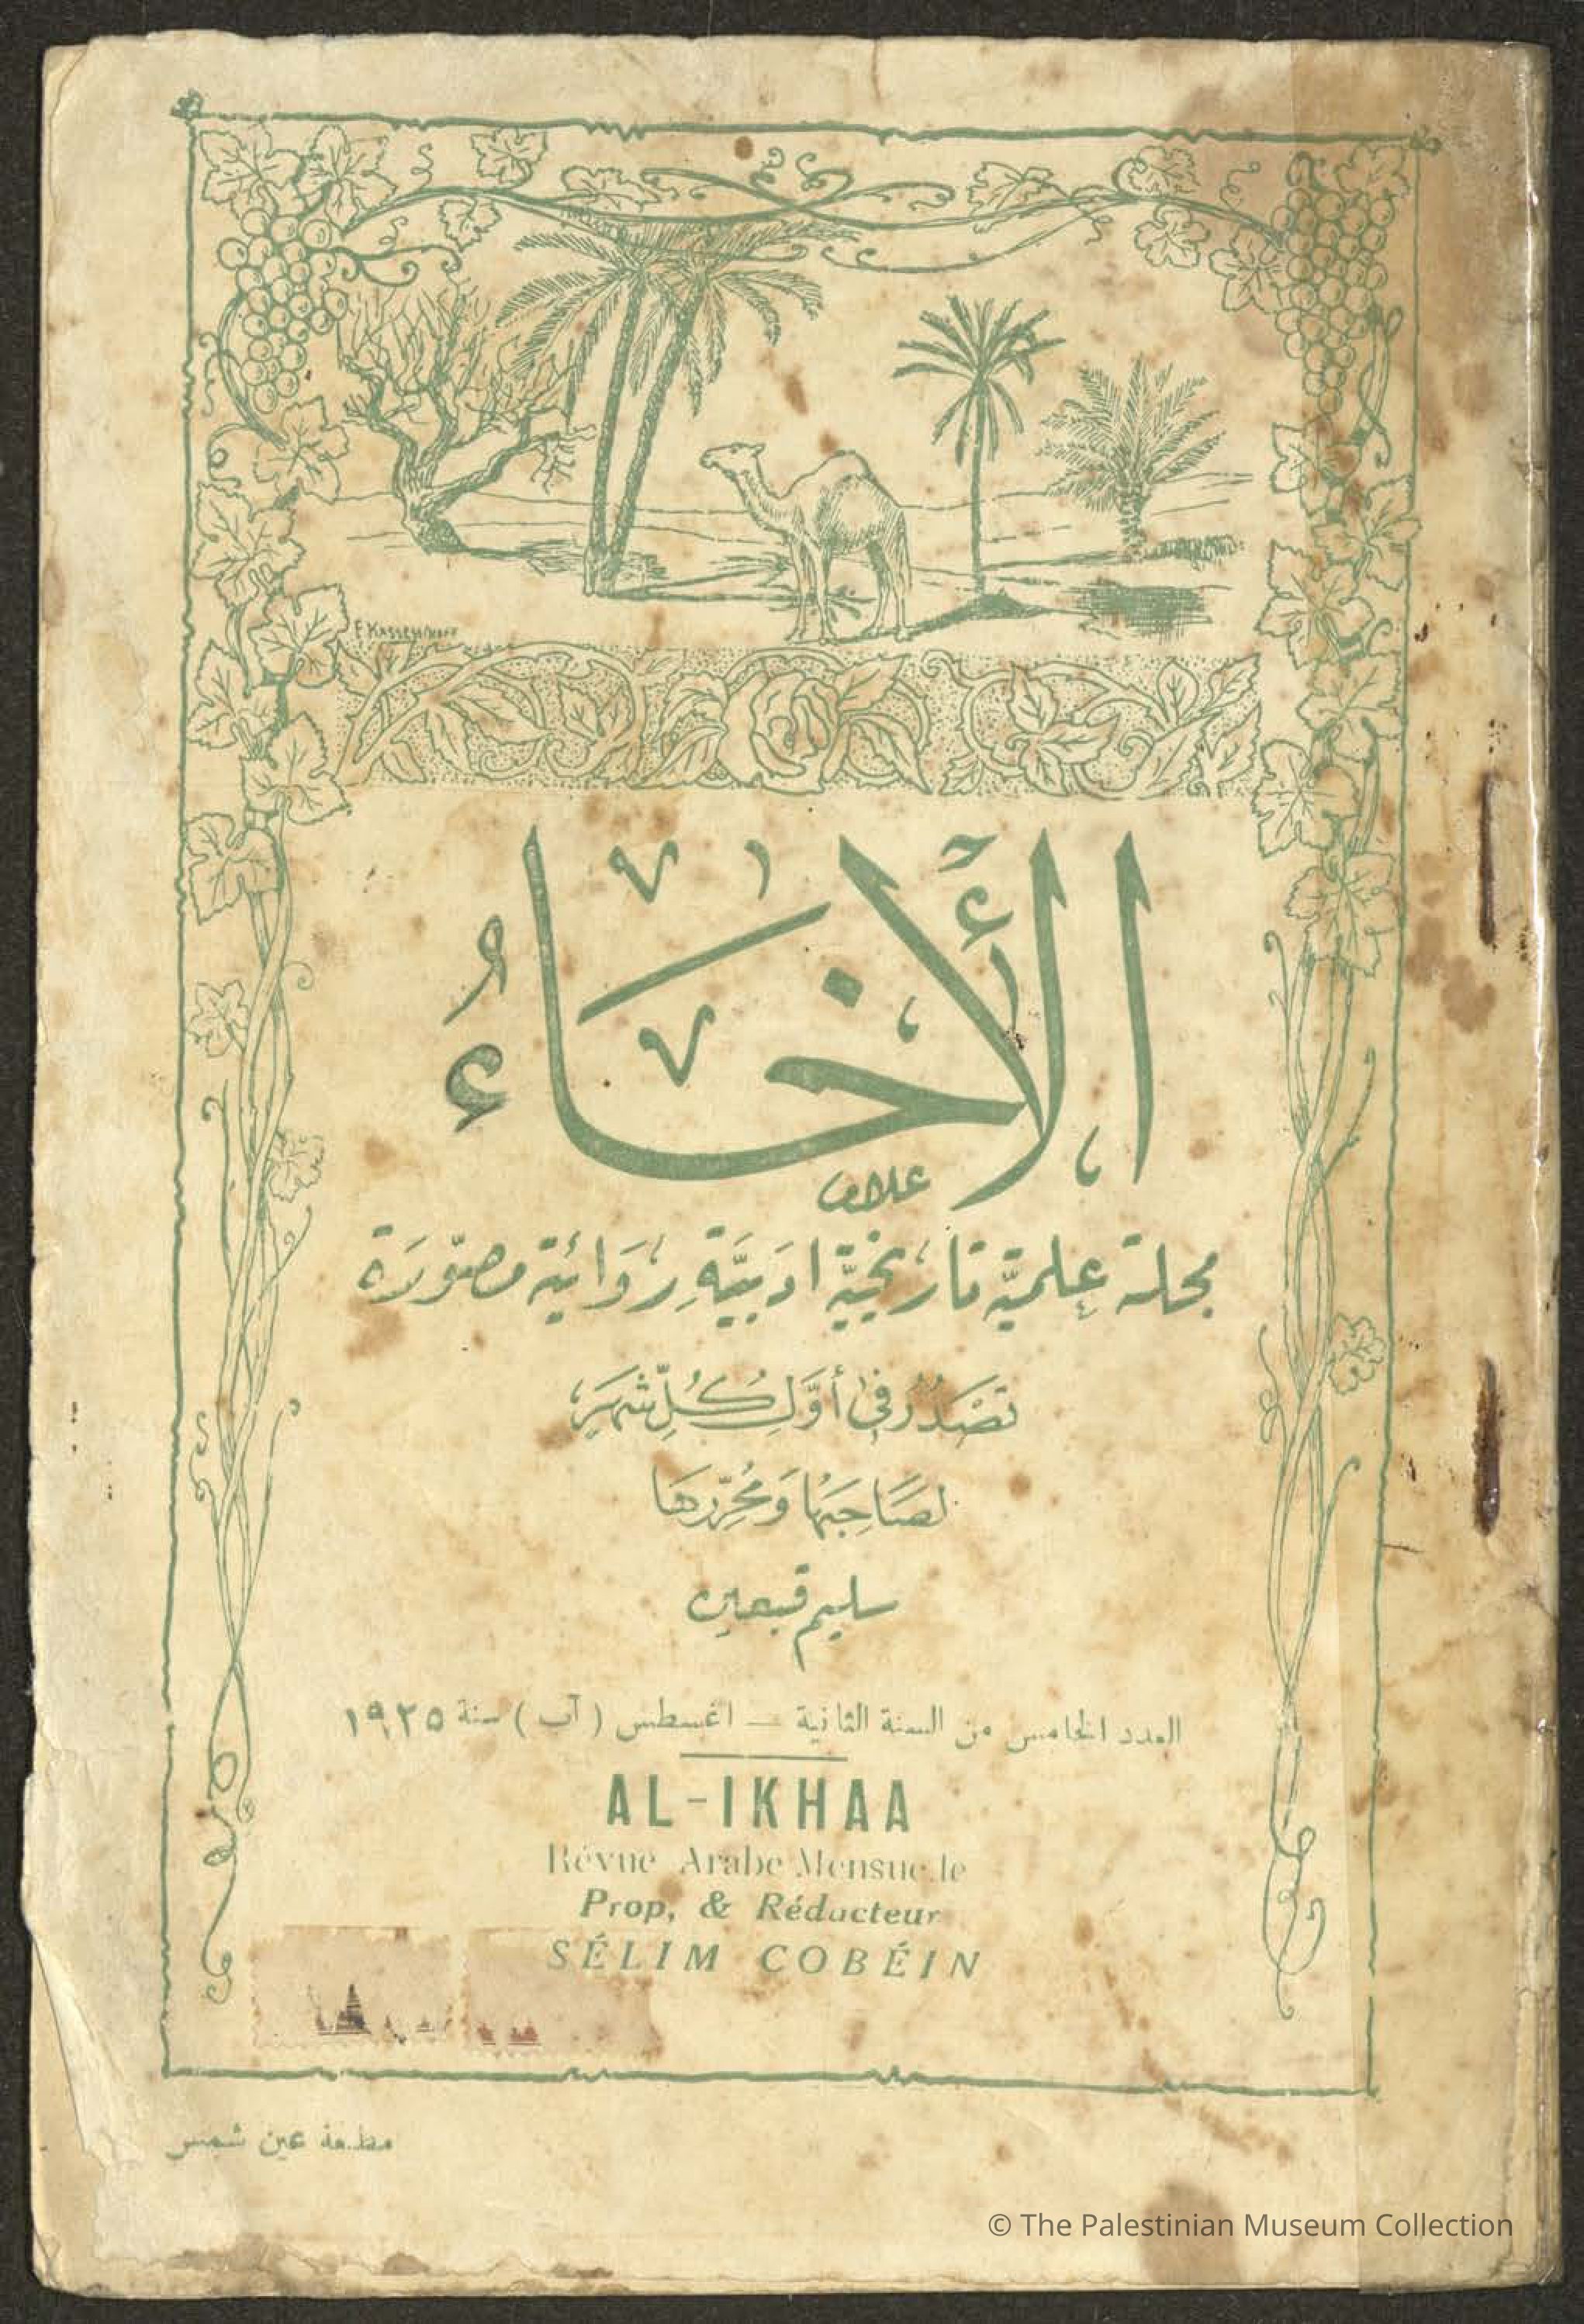 الأخاء
مجلة علميّة تاريخيّة ادَبيَّة رِوَائية مصوّرَة
تصَدُر في أوَّلِ كُلّ شهَر
لصَاحِبهَا وَمُحرّرهَا
سليم قبعين
العدد الخامس من السنة الثانية — اغسطس ( آب ) سنة ١٩٢٥
AL-IKHAA
Révue Arabe Mensue le
Prop, & Rédacteur
SÉLIM COBÉIN
مطبعة عين شمس
© The Palestinian Museum Collection